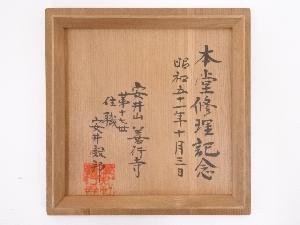 本堂修理記念
昭和五十一年十月三日
安井山 善行寺
第十七世
住職
安井